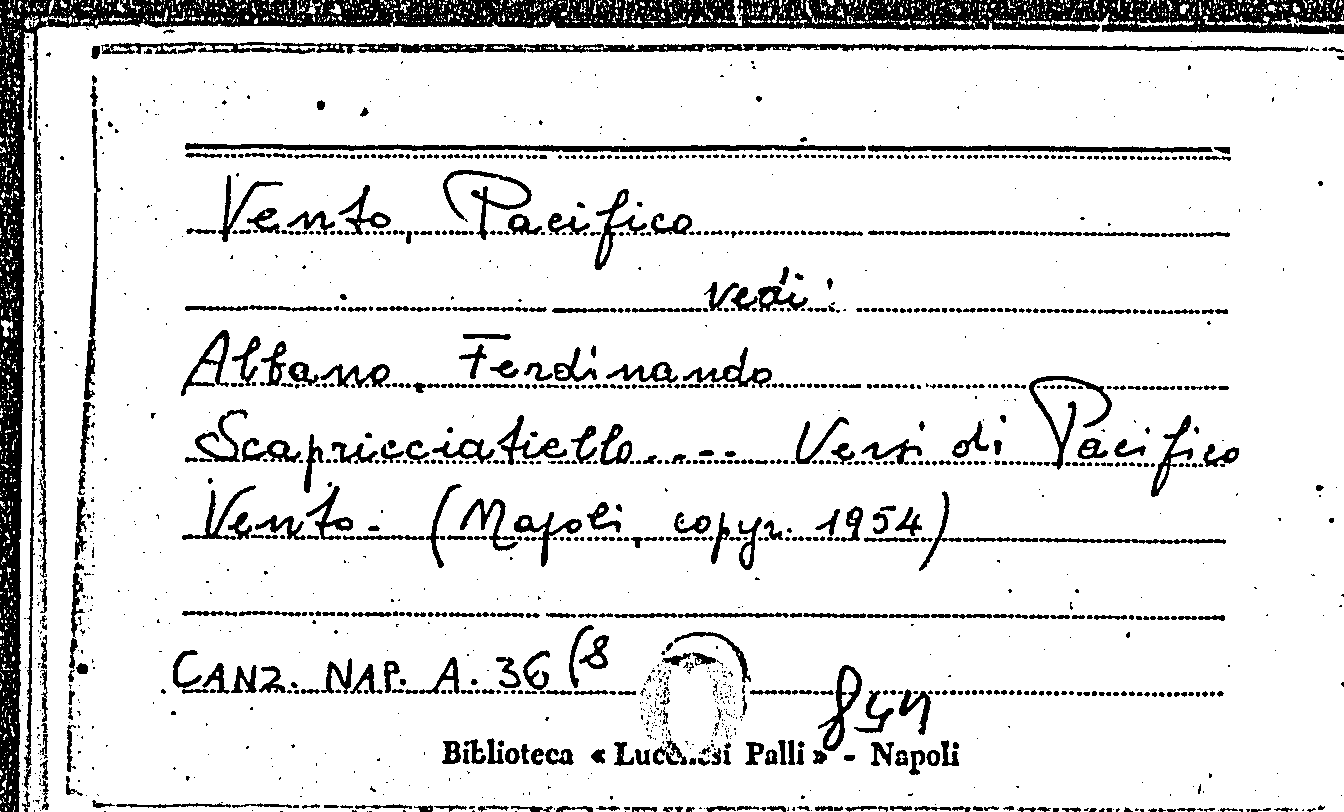 Vento, Pacifico
vedi:
Albano, Ferdinando
Scapricciatiello.... Versi di Pacifico
Vento. (Napoli, copyr. 1954)
CANZ. NAP. A. 36 (8
Biblioteca « Lucchesi Palli » - Napoli